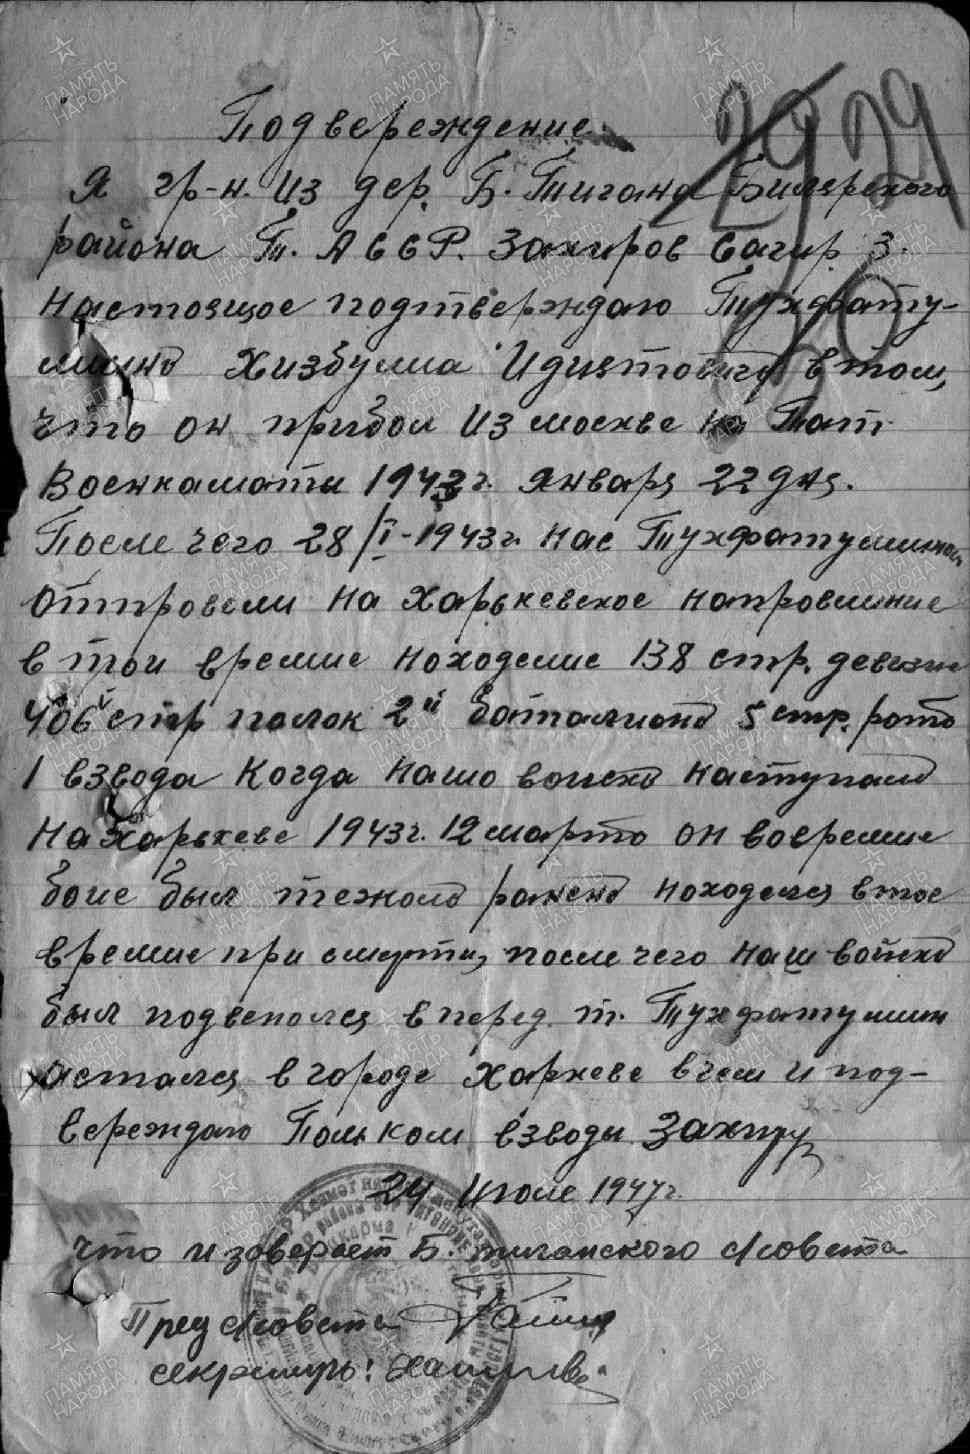 2929
30
Подвереждение
Я гр-н. из дер. Б. Тигана Билярского
района Т. АССР. Закиров Сагир З.
настоящое подтвереждаю Тухфату-
ллина Хизбулла Идиятовича в том,
что он прибол из москве на Тат
Военкаматы 1943 г. январь 22 дня.
После чего 28/I-1943г. нас Тухфатуллиным
отпровели на Харькевское напровление
в той времие находелие 138 стр. девезие
406й стр полок 2й баталиона 5 стр. рота
1 взвода Когда нашо войска наступала
на Харькеве 1943г. 12 марта он вовремие
боие был тежоло ранена находелся в тое
времие при смерти, после чего наш войска
был подвеполся вперед. т. Тухфатуллин
астался в городе Харкеве в чем и под-
вереждаю Польком взводы Закир
24 Июле 1947г.
что и зоверает Б. тиганского с/совета
Пред с/совета
секретарь: